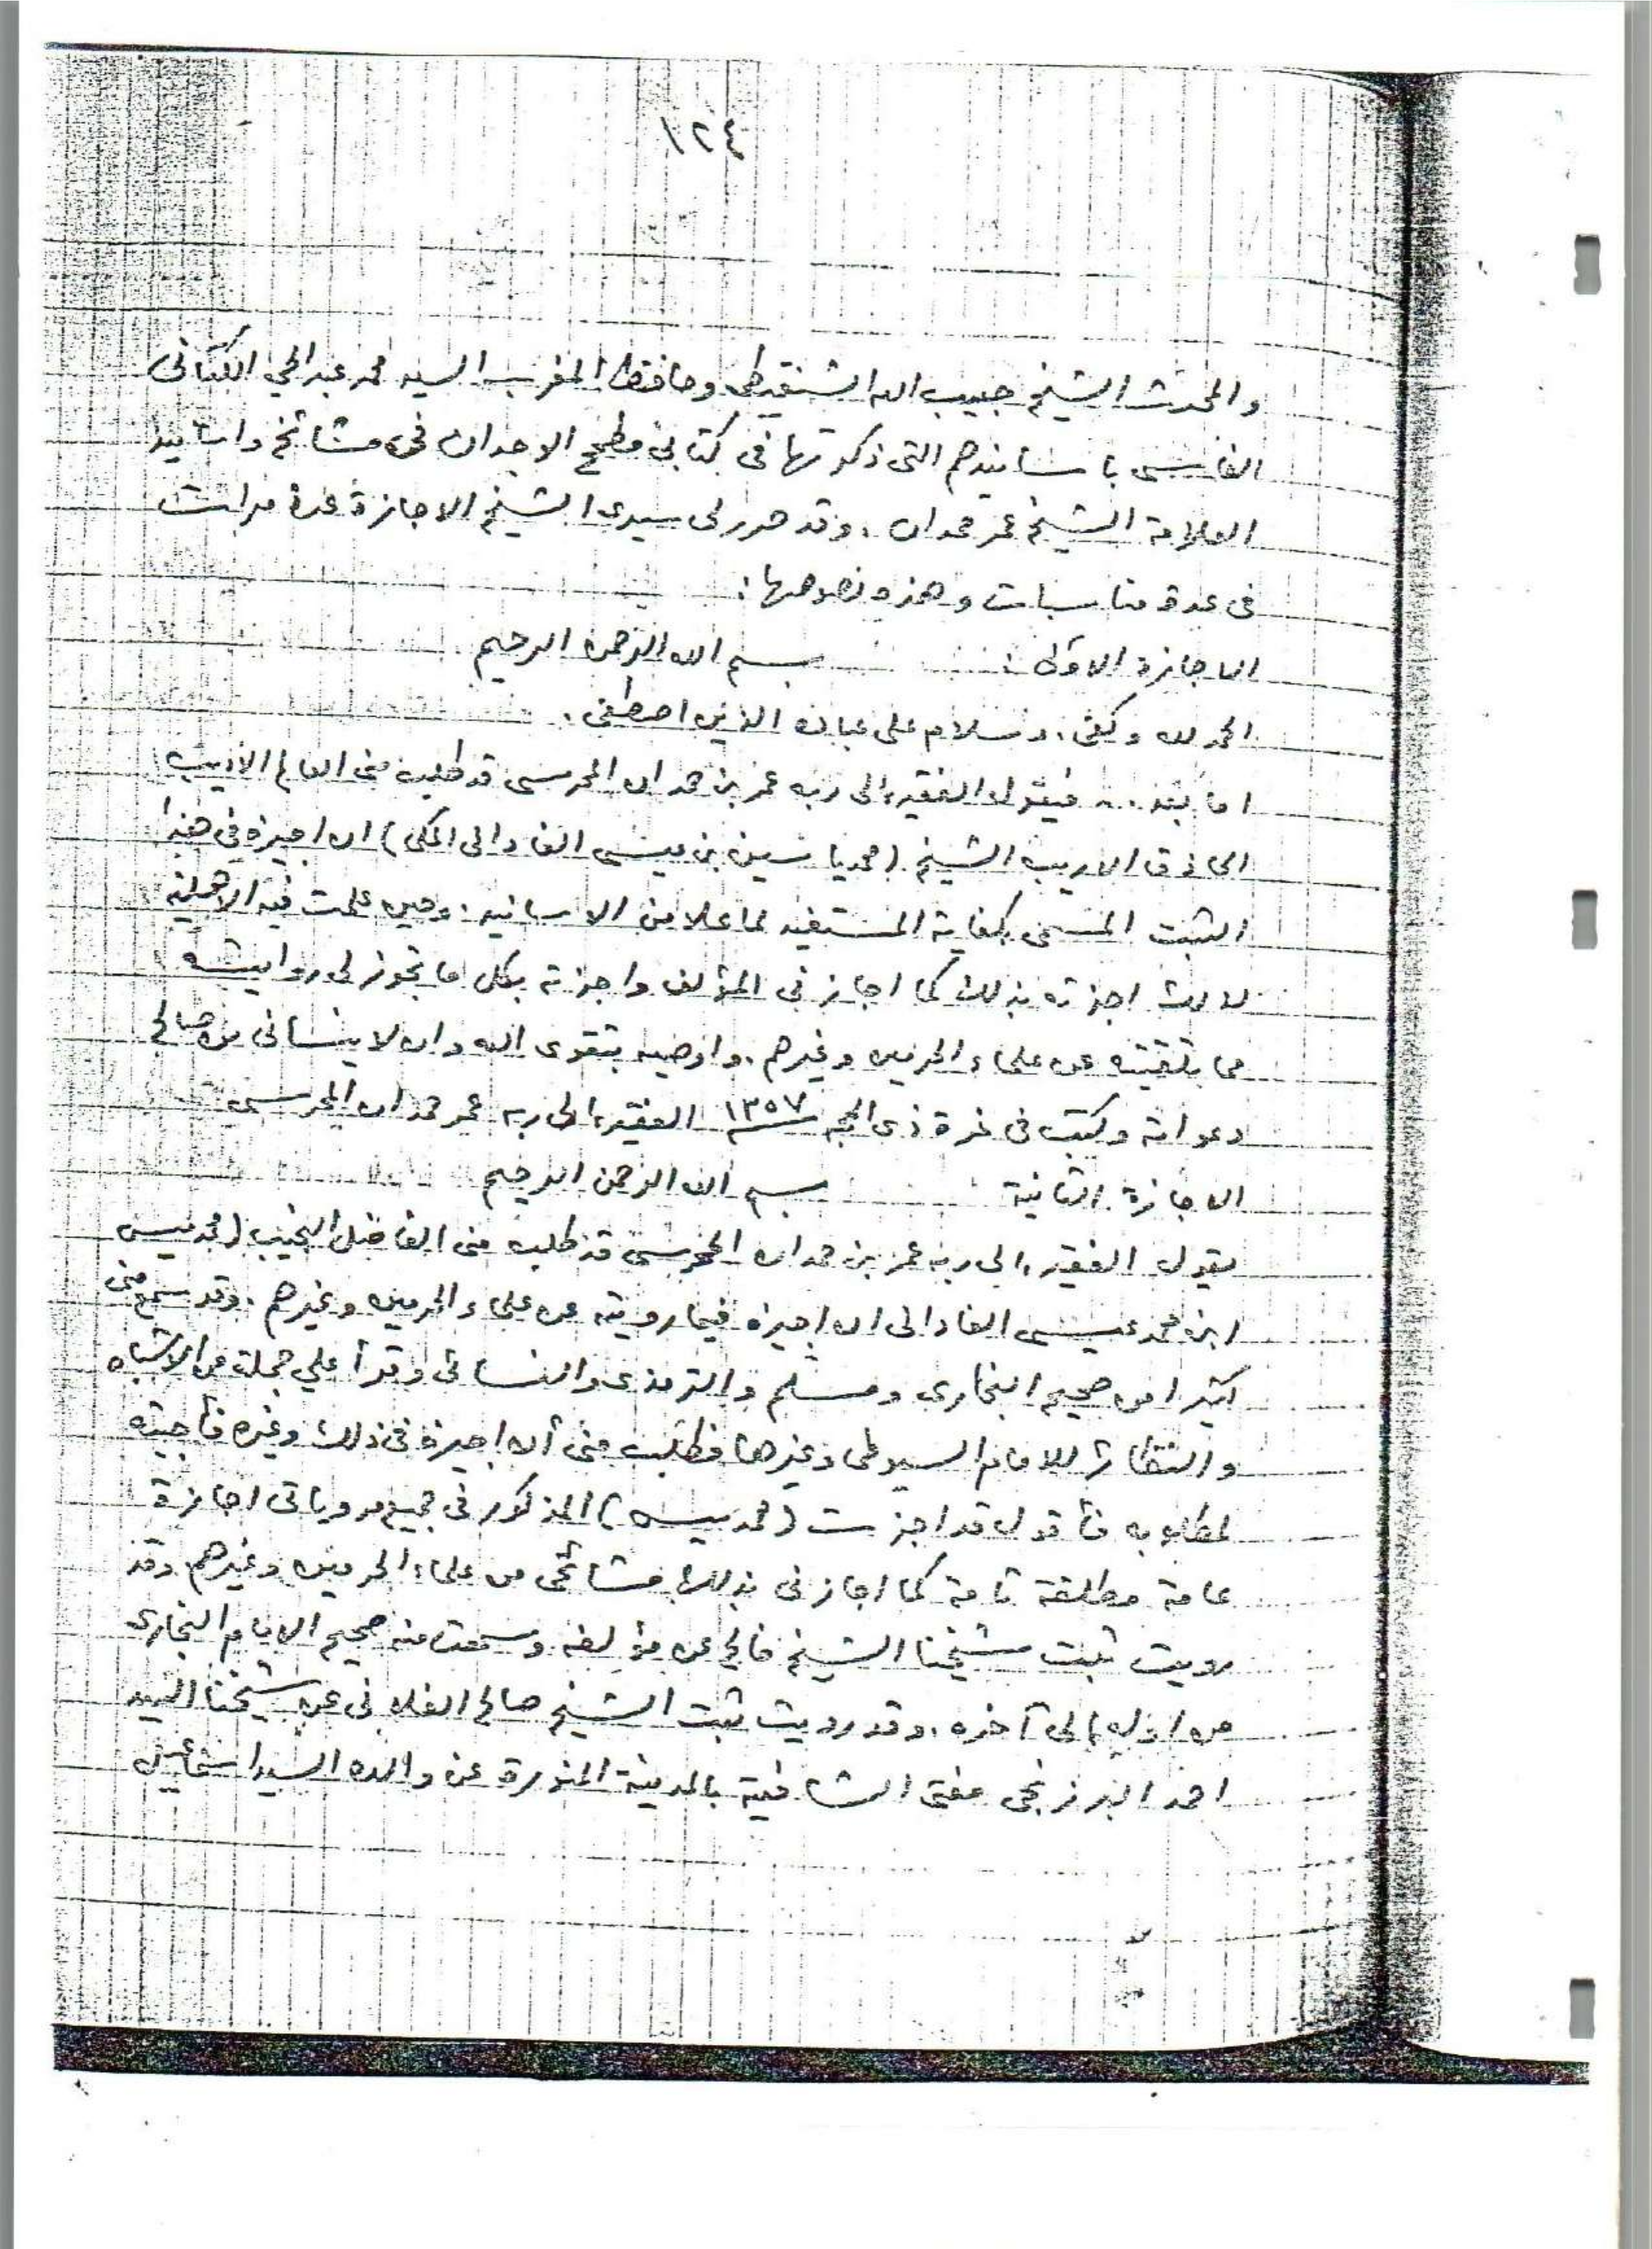 ١٢٤
والمحدث الشيخ حبيب الله الشنقيطي وحافظ المغرب السيد محمد عبد الحي الكتاني
الفاسي بأسانيدهم التي ذكرتها في كتابي مطمح الوجدان في مشائخ واسانيد
العلامة الشيخ عمر حمدان ، وقد حرر لي سيدي الشيخ الاجازة عدة مرات
في عدة مناسبات وهذه نصوصها :
الاجازة الاولى : بسم الله الرحمن الرحيم
الحمد لله وكفى ، وسلام على عباده الذين اصطفى .
اما بعد .. فيقول الفقير إلى ربه عمر بن حمدان المحرسي قد طلب مني العالم الأديب
الحاذق الاريب الشيخ (محمد ياسين بن عيسى الفاداني المكي) ان اجيزه في هذا
الثبت المسمى بكفاية المستفيد لما علا من الاسانيد ، وحين علمت فيه الاهلية
لذلك اجزته بذلك كما اجازني المؤلف واجزته بكل ما تجوز لي روايته
مما تلقيته عن علماء الحرمين وغيرهم ، واوصيه بتقوى الله وان لا ينساني من صالح
دعواته وكتب في غرة ذي الحجه ١٣٥٧ الفقير إلى ربه عمر حمدان المحرسي
الاجازة الثانية بسم الله الرحمن الرحيم
يقول الفقير إلى ربه عمر بن حمدان المحرسي قد طلب مني الفاضل النجيب (محمد يسن
ابن محمد عيسى الفاداني ان اجيزه فيما رويته عن علماء الحرمين وغيرهم ، وقد سمع مني
كثيرا من صحيح البخاري ومسلم والترمذي والنسائي وقرأ علي جملة من الاشباه
والنظائر للامام السيوطي وغيرها فطلب مني أن اجيزه في ذلك وغيره فأجبته
لمطلوبه فأقول قد اجزت (محمد يسن) المذكور في جميع مروياتي اجازة
عامة مطلقة تامة كما اجازني بذلك مشائخي من علماء الحرمين وغيرهم وقد
رويت ثبت شيخنا الشيخ فالح عن مؤلفه وسمعت منه صحيح الامام البخاري
من اوله إلى آخره ، وقد رويت ثبت الشيخ صالح الفلاني عن شيخنا السيد
احمد البرزنجي مفتي الشافعية بالمدينة المنورة عن والده السيد اسماعيل